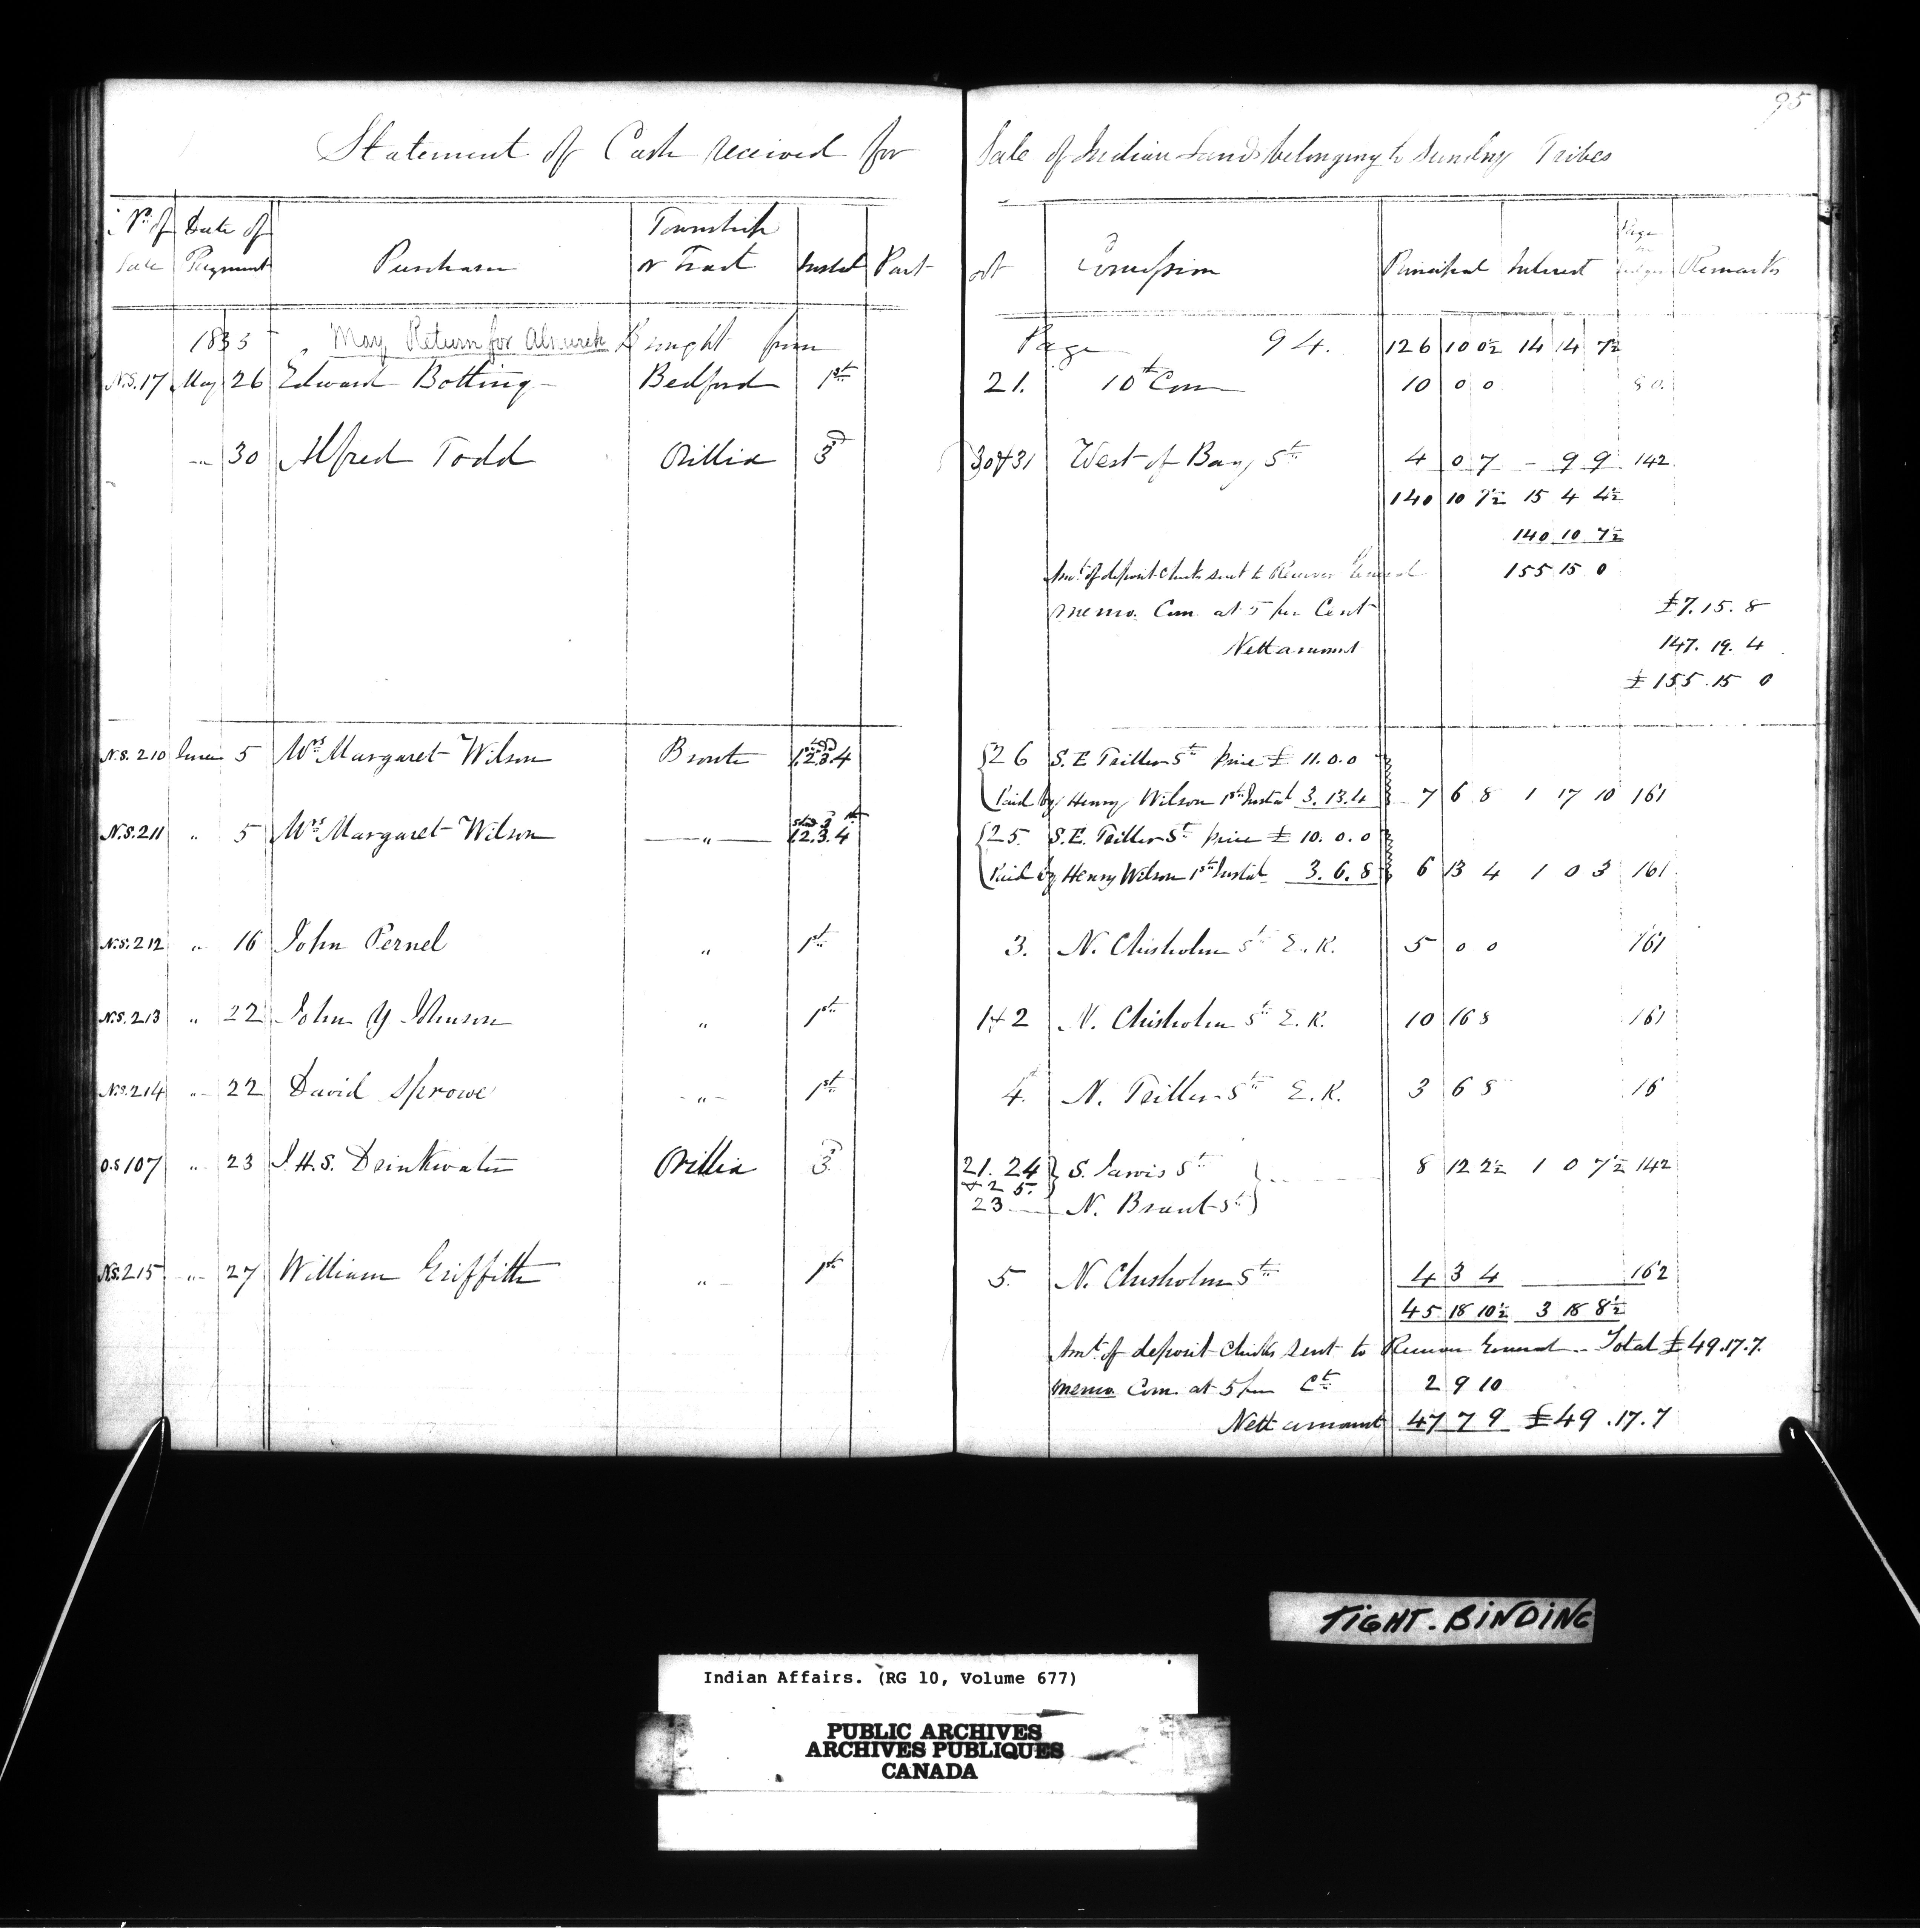 95
Statement of Cash received for Sale of Indian Lands belonging to Sundry Tribes
No. of Sale Date of Payment Purchaser Township or Tract Instal Part Lot Concession Principal Interest Page Ledger Remarks
1835 May Return for Brought from Page 94. 126 10 0½ 14 14 7½
N.S. 17 May 26 Edward Botting Bedford 1st 21. 10th Con 10 0 0 80.
" 30 Alfred Todd Orillia 3d 30 & 31 West of Bay St 4 0 7 - 9 9 142
140 10 7½ 15 4 4½
140 10 7½
Amt. of deposit checks sent to Receiver General 155 15 0
memo. Com. at 5 per Cent £7. 15. 8
Nett amount 147. 19. 4
£155. 15 0
N.S. 210 June 5 Mrs Margaret Wilson Bronte 1.2.3.4 26 S. E Triller St price £ 11. 0. 0
Paid by Henry Wilson 1st Instal 3. 13. 4 7 6 8 1 17 10 161
N.S. 211 " 5 Mrs Margaret Wilson " 1.2.3.4 25. S. E. Triller St price £ 10. 0. 0
Paid by Henry Wilson 1st Instal 3. 6. 8 6 13 4 1 0 3 161
N.S. 212 " 16 John Pernel " 1st 3. N. Chisholm St E. R. 5 0 0 161
N.S. 213 " 22 John Y Johnson " 1st 1 & 2 N. Chisholm St E. R. 10 16 8 161
N.S. 214 " 22 David Sprowe " 1st 4. N. Triller St E. R. 3 6 8 16
O.S 107 " 23 J. H. S. Drinkwater Orillia 3d 21. 24 S. Jarvis St 8 12 2½ 1 0 7½ 142
& 2 5.
23 N. Brant St
N.S. 215 " 27 William Griffith " 1st 5. N. Chisholm St 4 3 4 162
45 18 10½ 3 18 8½
Amt. of deposit checks sent to Receiver General - Total £49. 17. 7.
memo. Com. at 5 per Ct 2 9 10
Nett amount 47 7 9 £49. 17. 7
TIGHT. BINDING
Indian Affairs. (RG 10, Volume 677)
PUBLIC ARCHIVES
ARCHIVES PUBLIQUES
CANADA